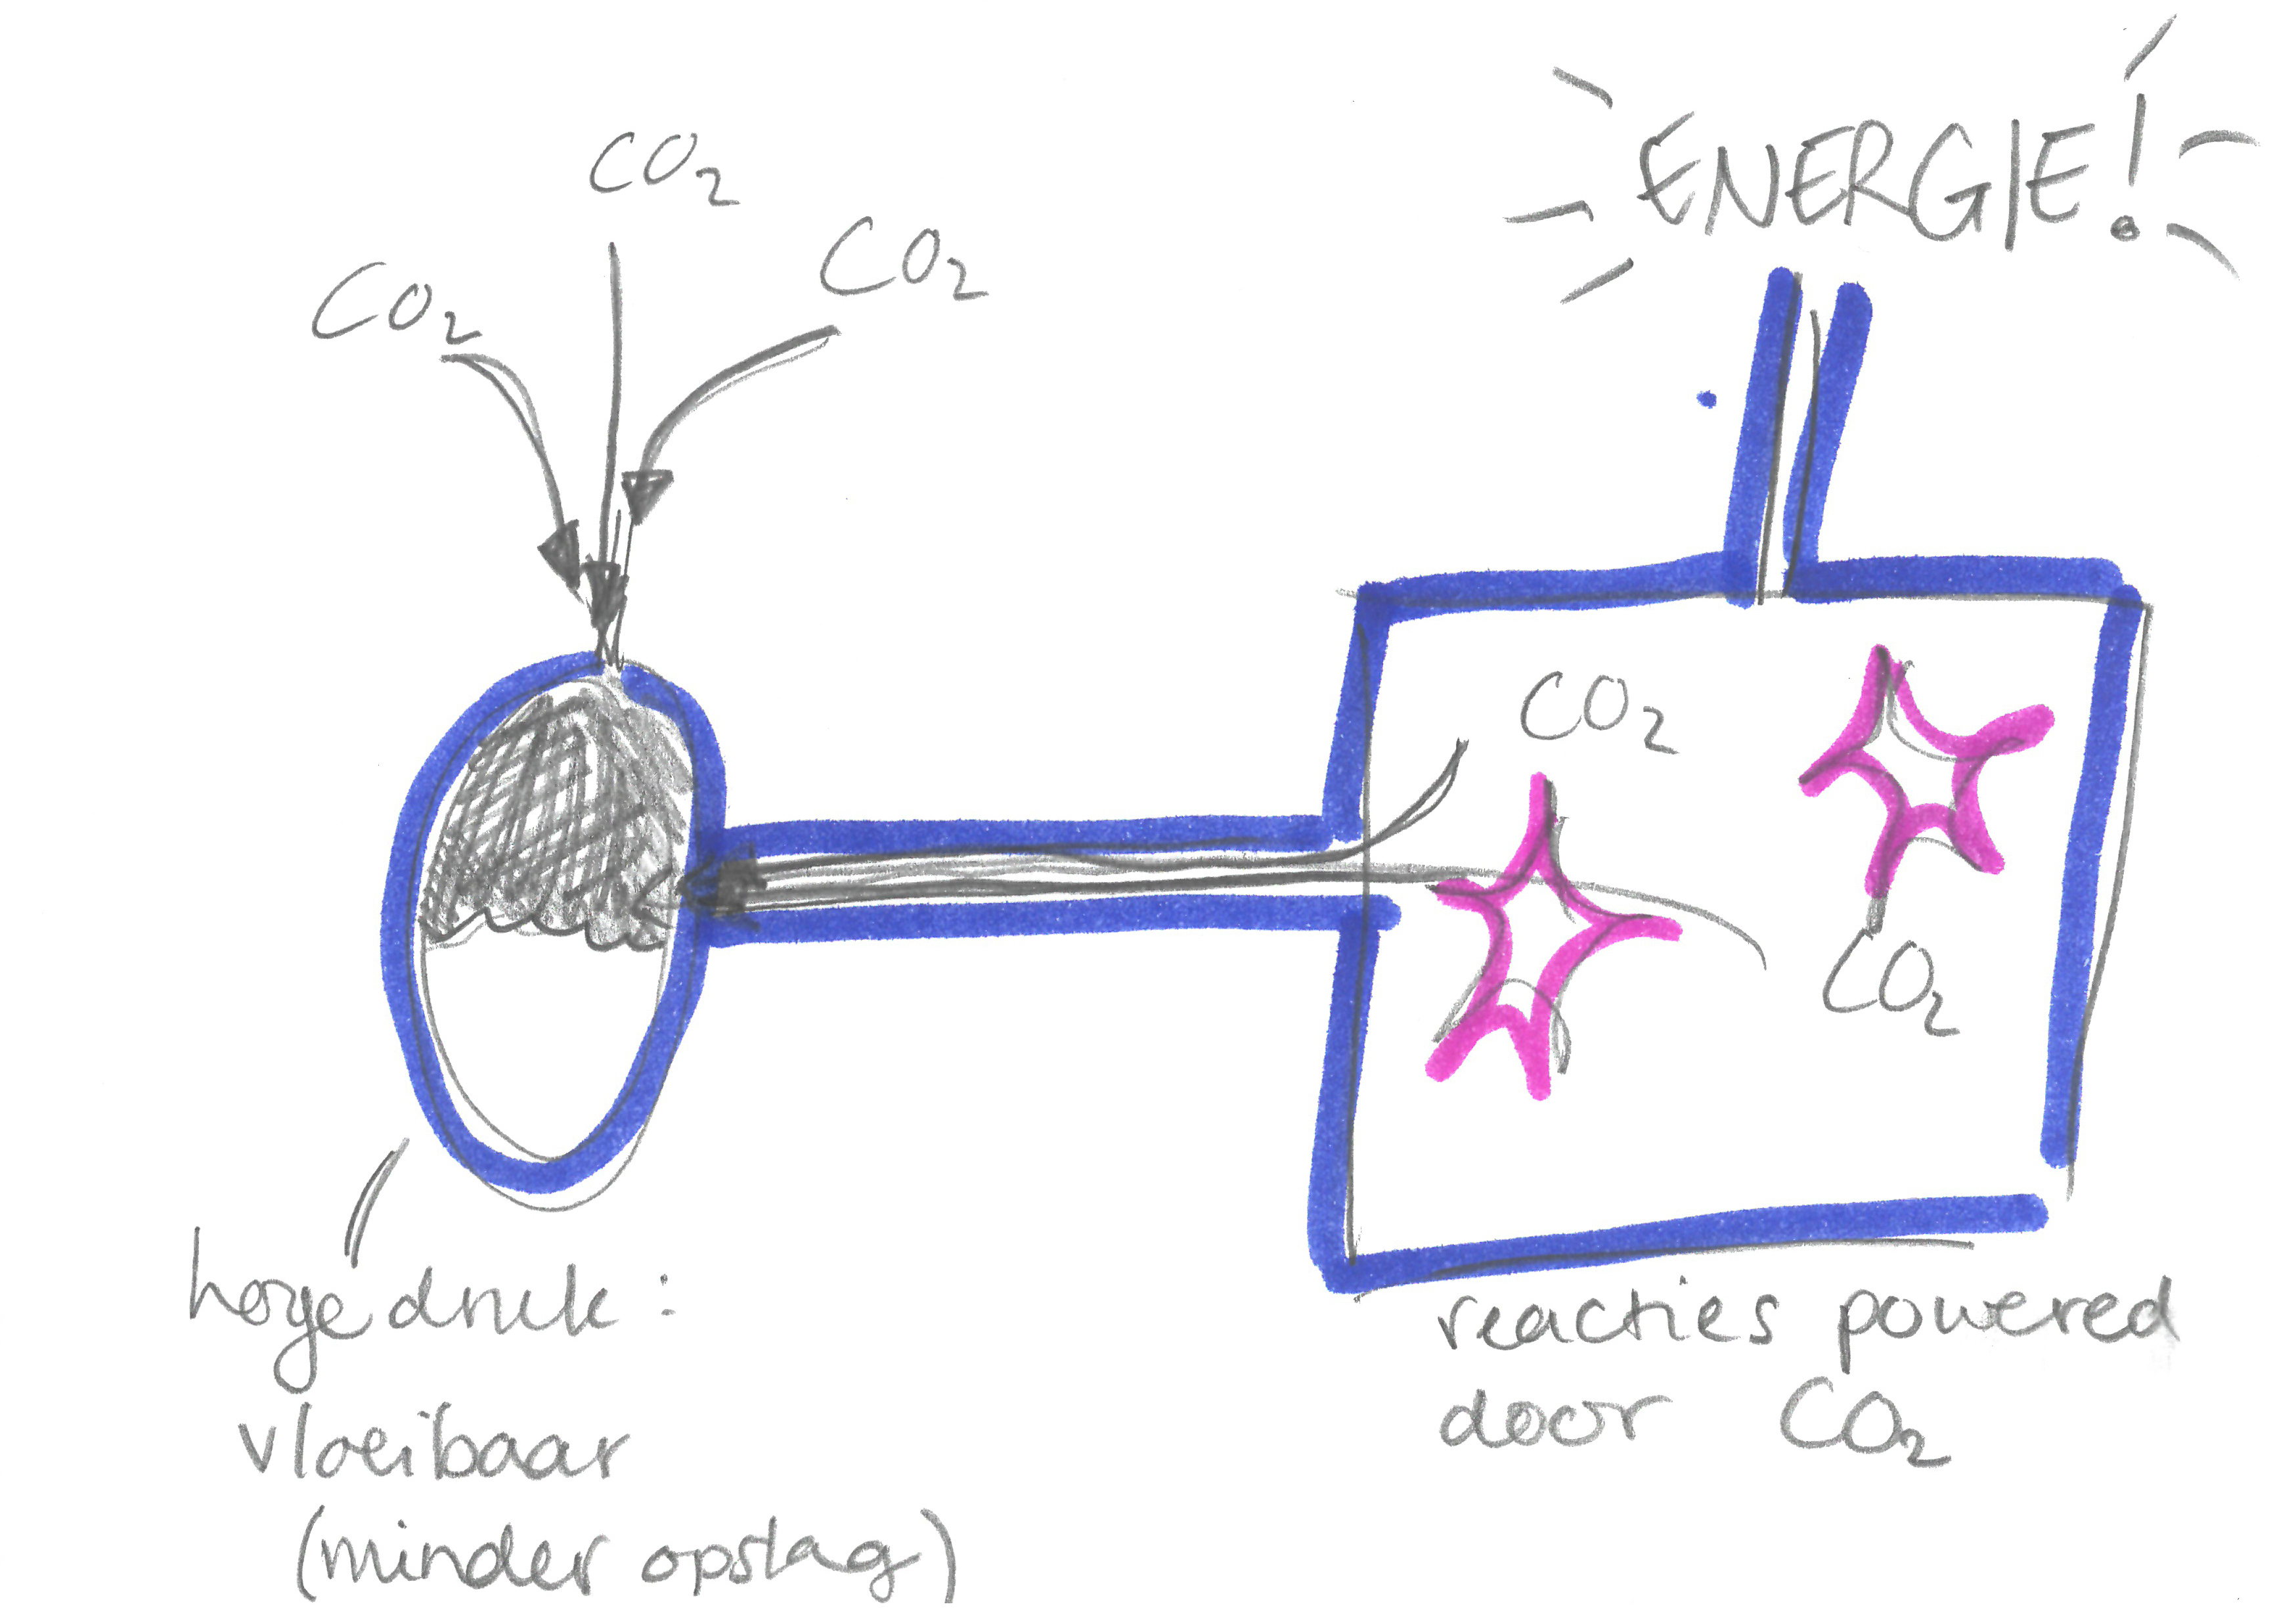 CO₂
CO₂
CO₂
ENERGIE!
CO₂
CO₂
hoge druk:
vloeibaar
(minder opslag)
reacties powered
door CO₂